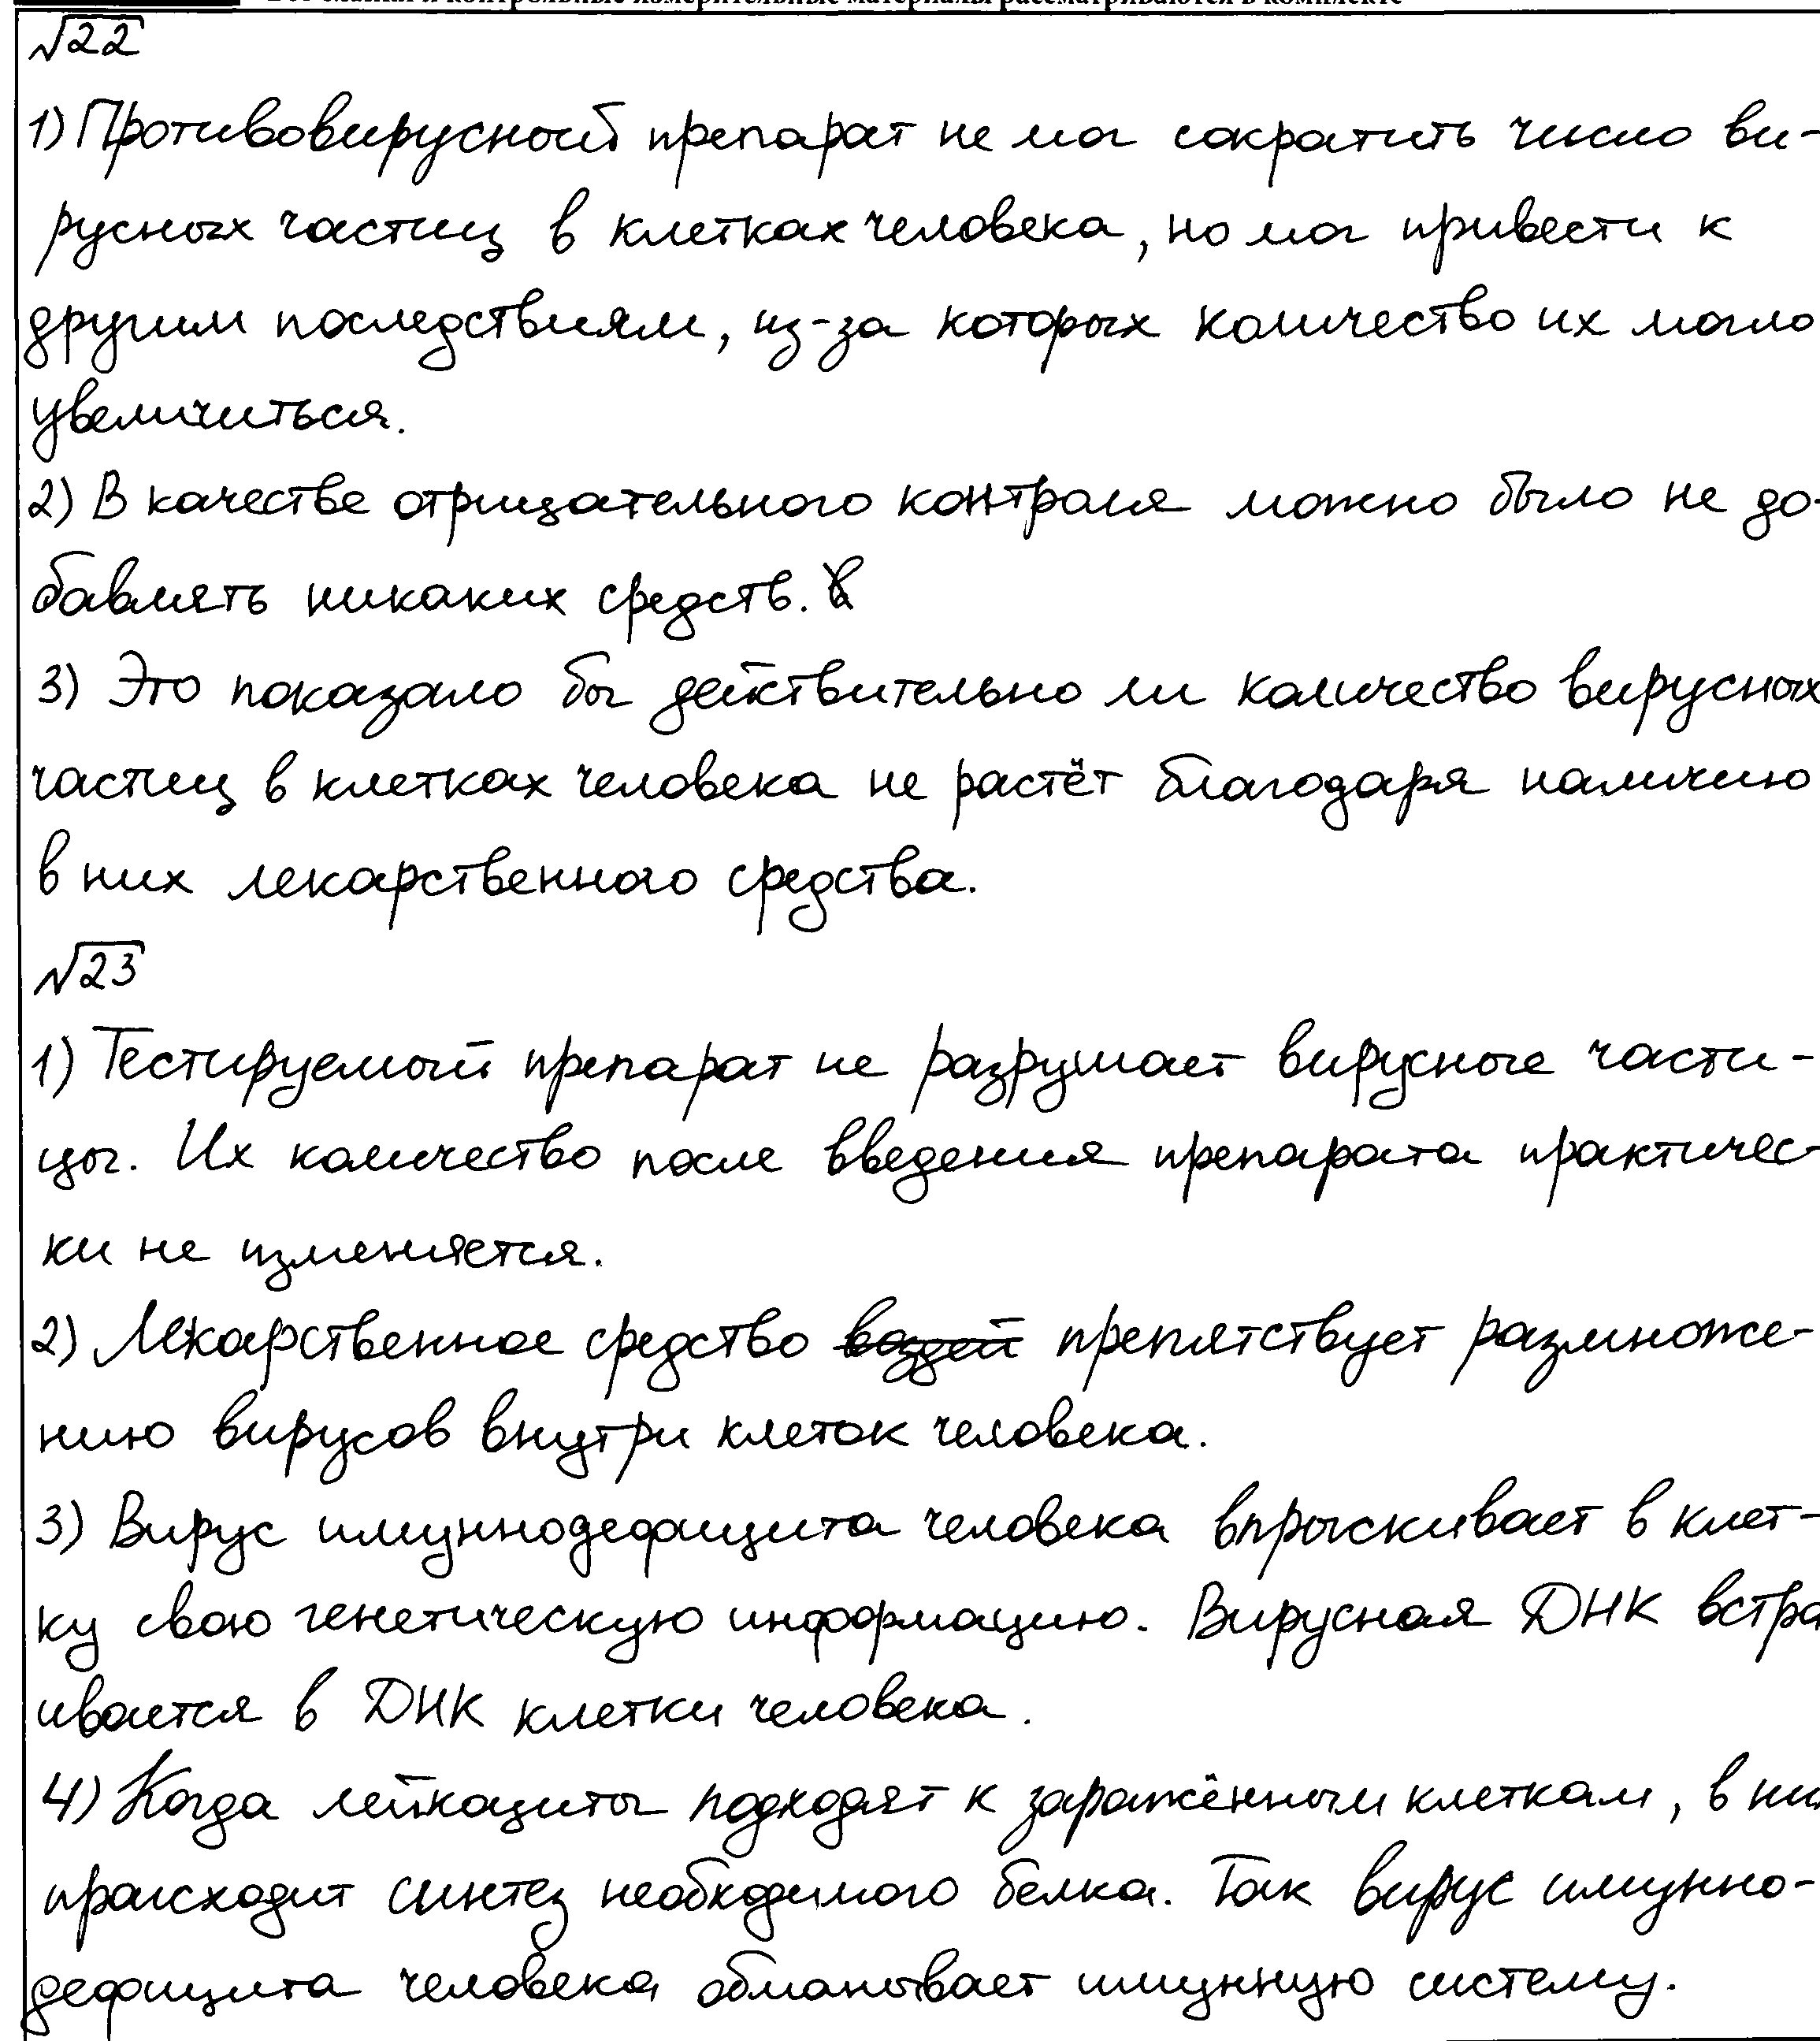 Все бланки и контрольные измерительные материалы рассматриваются в комплекте
√22
1) Противовирусный препарат не мог сократить число ви-
русных частиц в клетках человека, но мог привести к
другим последствиям, из-за которых количество их могло
увеличиться.
2) В качестве отрицательного контроля можно было не до-
бавлять никаких средств.
3) Это показало бы действительно ли количество вирусных
частиц в клетках человека не растёт благодаря наличию
в них лекарственного средства.
√23
1) Тестируемый препарат не разрушает вирусные части-
цы. Их количество после введения препарата практичес-
ки не изменяется.
2) Лекарственное средство препятствует размноже-
нию вирусов внутри клеток человека.
3) Вирус имуннодефицита человека впрыскивает в клет-
ку свою генетическую информацию. Вирусная ДНК встра
ивается в ДНК клетки человека.
4) Когда лейкациты подходят к заражённым клеткам, в них
происходит синтез необходимого белка. Так вирус имунно-
дефицита человека обманывает имунную систему.